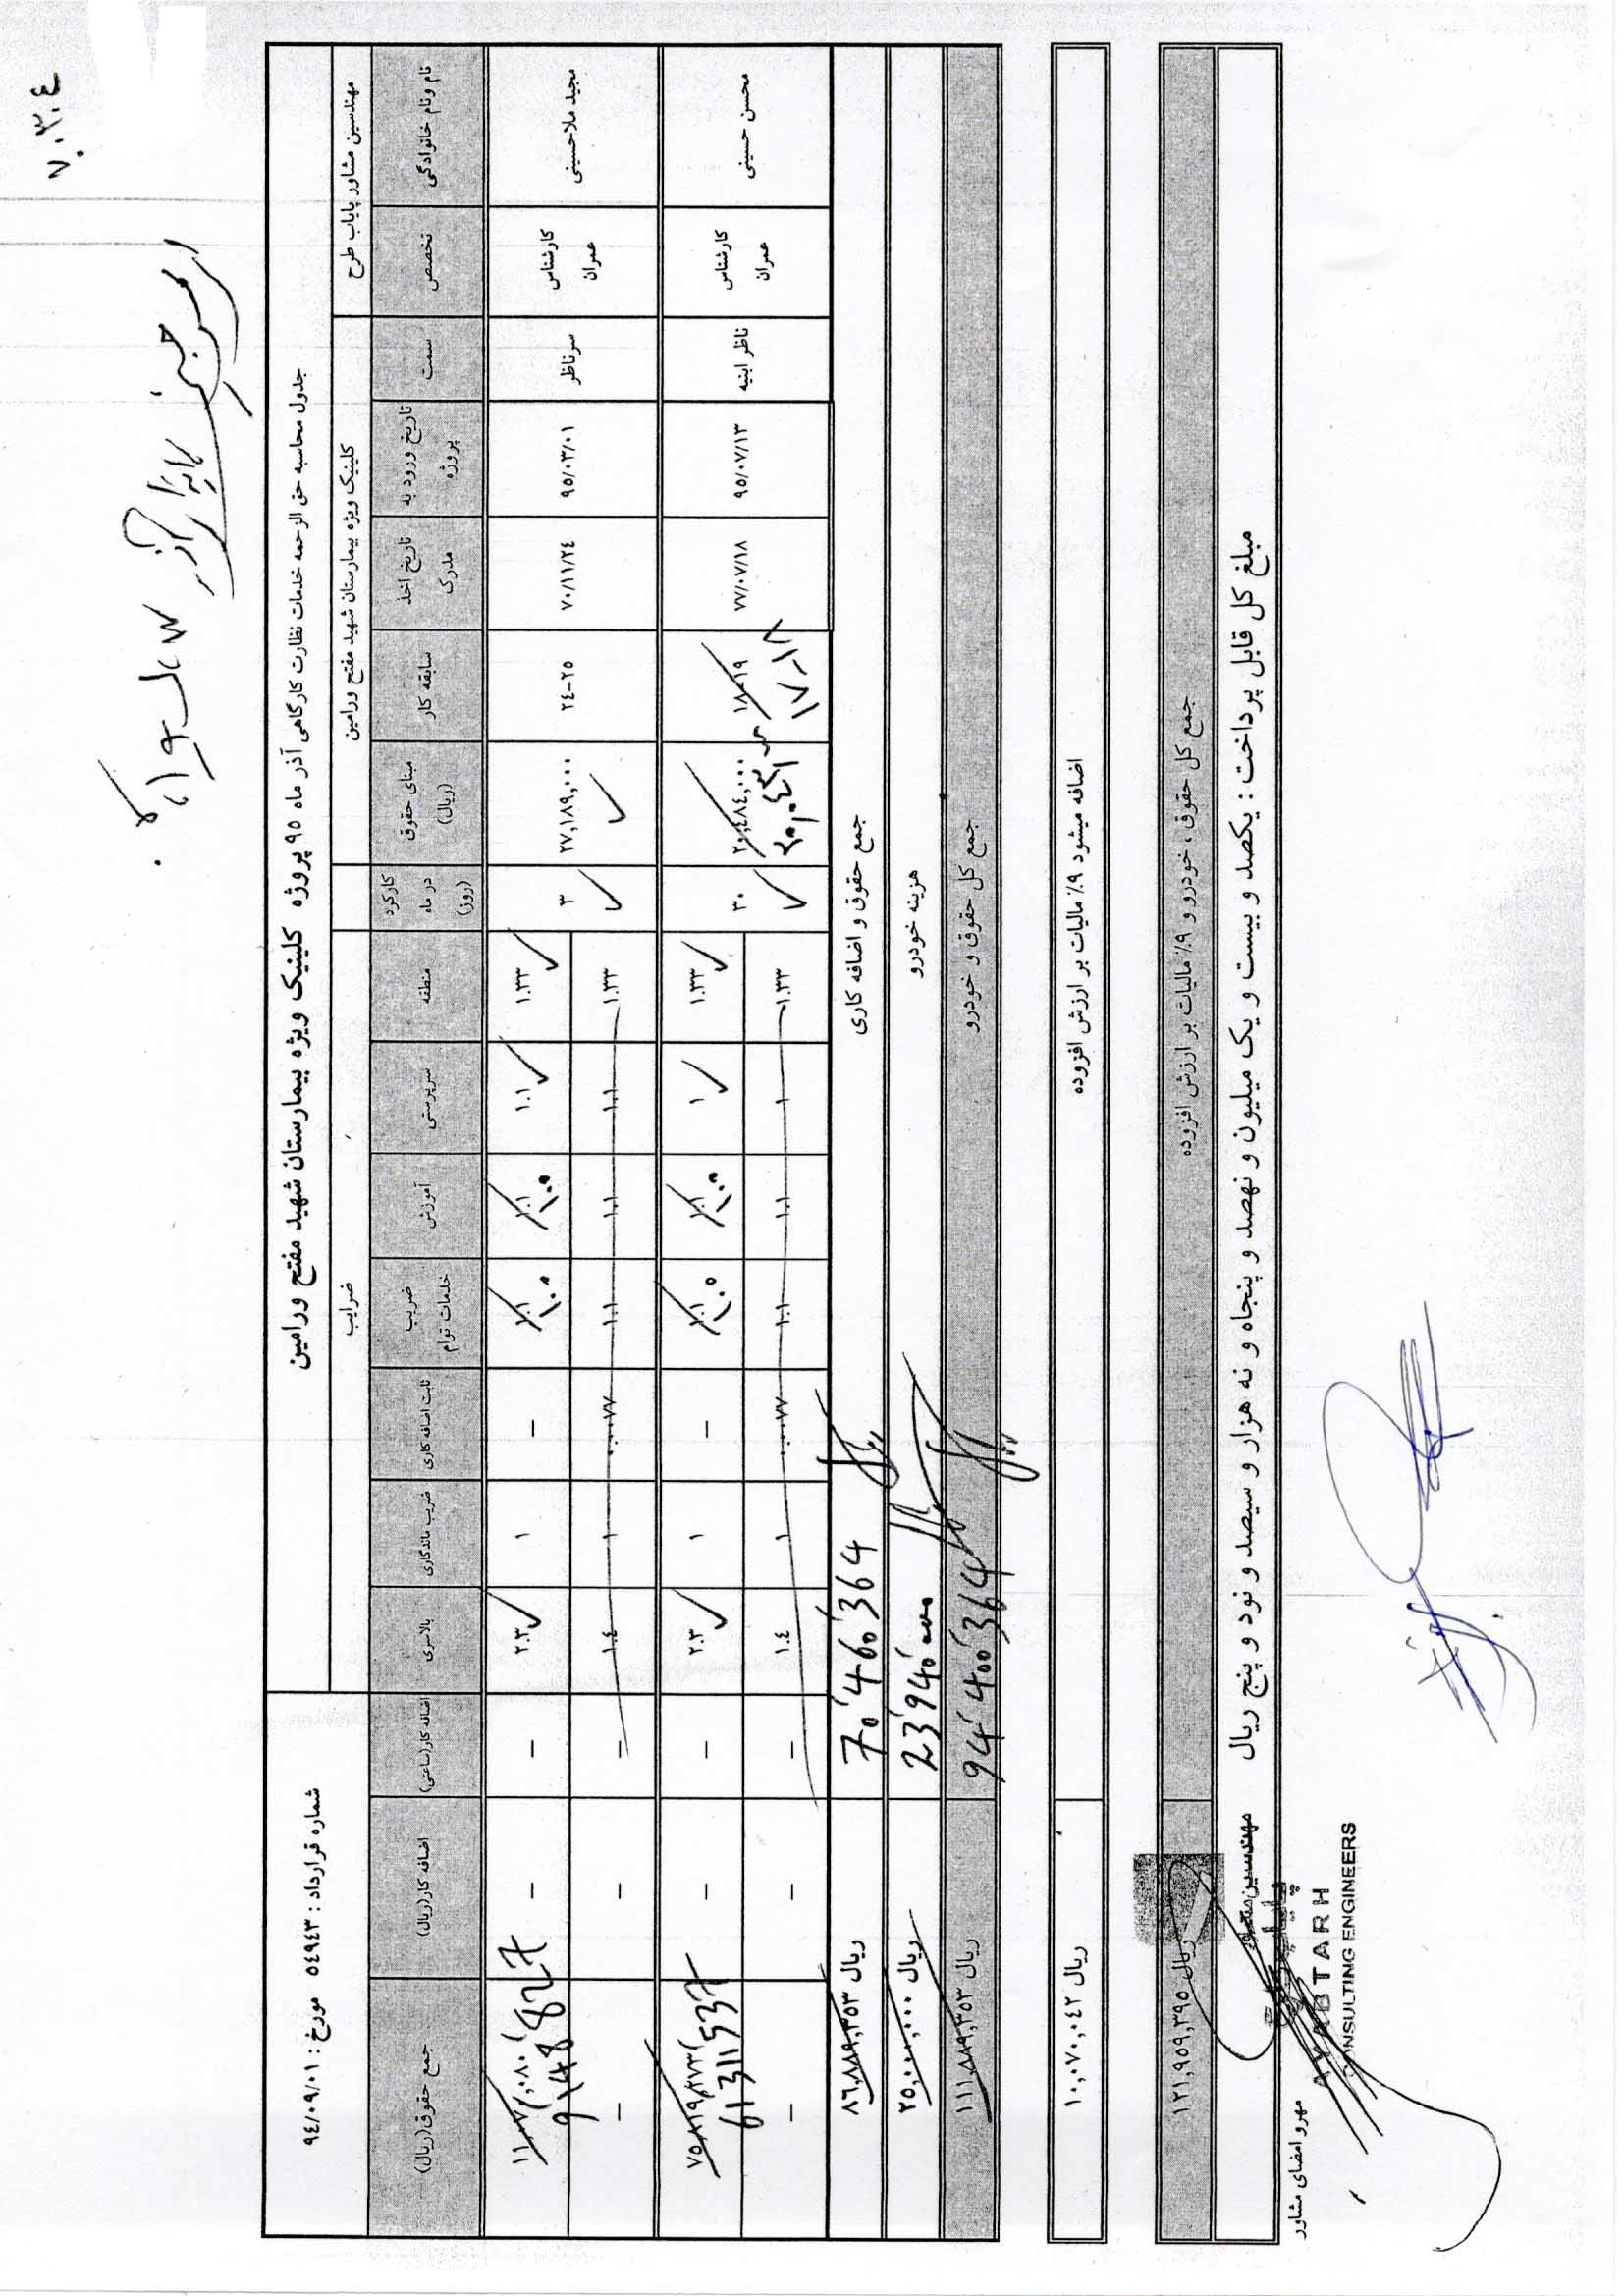 ۷۰۳۰٤
جدول محاسبه حق الزحمه خدمات نظارت کارگاهی آذر ماه ۹۵ پروژه کلینیک ویژه بیمارستان شهید مفتح ورامین
شماره قرارداد : ۵٤۹٤۳ مورخ : ۹٤/۰۹/۰۱
مهندسین مشاور پایاب طرح
کلینیک ویژه بیمارستان شهید مفتح ورامین
ضرایب
نام ونام خانوادگی تخصص سمت تاریخ ورود به پروژه تاریخ اخذ مدرک سابقه کار مبنای حقوق (ریال) کارکرد در ماه (روز) منطقه سرپرستی آموزش ضریب خدمات توام ثابت اضافه کاری ضریب ماندگاری بالاسری اضافه کار(ساعتی) اضافه کار(ریال) جمع حقوق(ریال)
مجید ملاحسینی کارشناس عمران سرناظر ۹۵/۰۳/۰۱ ۷۰/۱۱/۲٤ ۲٤-۲۵ ۲۷,۱۸۹,۰۰۰ ۳ ۱.۳۳ ۱.۱ ۱.۱ ۱.۱ - ۱ ۲.۳ - -
۱.۰۵ ۱.۰۵ 9148827
۱.۳۳ ۱.۱ ۱.۱ ۱.۱ ۰.۰۰۷۷ ۱ ۱.٤ - - -
محسن حسینی کارشناس عمران ناظر ابنیه ۹۵/۰۷/۱۳ ۷۷/۰۷/۱۸ ۱۸-۱۹ ۲۰,٤۸٤,۰۰۰ ۳۰ ۱.۳۳ ۱ ۱.۱ ۱.۱ - ۱ ۲.۳ - - ۷۵,۸۱۹,۲۷۳
۱۷-۱۸ ۱.۰۵ ۱.۰۵ 61311537
۱.۳۳ ۱ ۱.۱ ۱.۱ ۰.۰۰۷۷ ۱ ۱.٤ - - -
جمع حقوق و اضافه کاری 70'460'364 ریال ۸٦,۸۸۹,۳۵۳
هزینه خودرو 23'940'000 ریال ۲۵,۰۰۰,۰۰۰
جمع کل حقوق و خودرو 94'400'364 ریال ۱۱۱,۸۸۹,۳۵۳
اضافه میشود ۹٪ مالیات بر ارزش افزوده ریال ۱۰,۰۷۰,۰٤۲
جمع کل حقوق ، خودرو و ۹٪ مالیات بر ارزش افزوده ریال ۱۲۱,۹۵۹,۳۹۵
مبلغ کل قابل پرداخت : یکصد و بیست و یک میلیون و نهصد و پنجاه و نه هزار و سیصد و نود و پنج ریال
مهندسین مشاور
پایاب طرح
AYABTARH
CONSULTING ENGINEERS
مهرو امضای مشاور